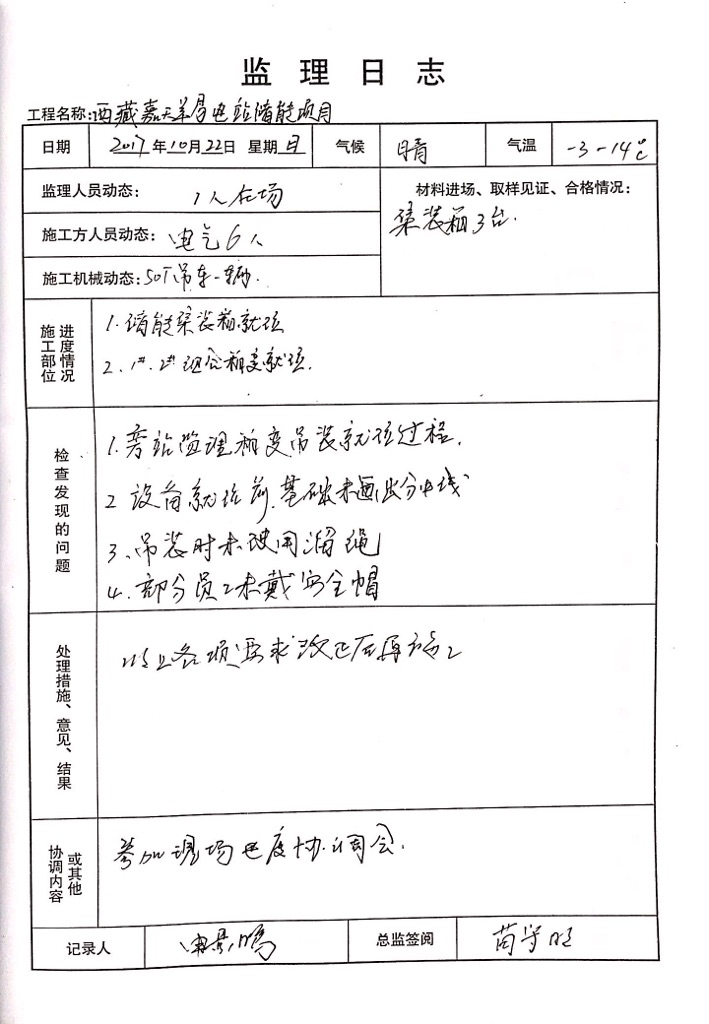 监理日志
工程名称:西藏嘉天羊易电站储能项目
日期 2017年10月22日 星期日 气候 晴 气温 -3-14℃
监理人员动态: 1人在场
材料进场、取样见证、合格情况:
集装箱3台.
施工方人员动态: 电气6人
施工机械动态:50T吊车一辆.
施工部位 进度情况
1.储能集装箱就位
2.1#.2#组合箱变就位.
检查发现的问题
1.旁站监理箱变吊装就位过程.
2 设备就位前,基础未画出分中线
3、吊装时未使用溜绳
4.部分员工未戴安全帽
处理措施、意见、结果
以上各项要求改正后再施工
协调内容 或其他
参加现场进度协调会.
记录人 景鸣 总监签阅 苗学旺